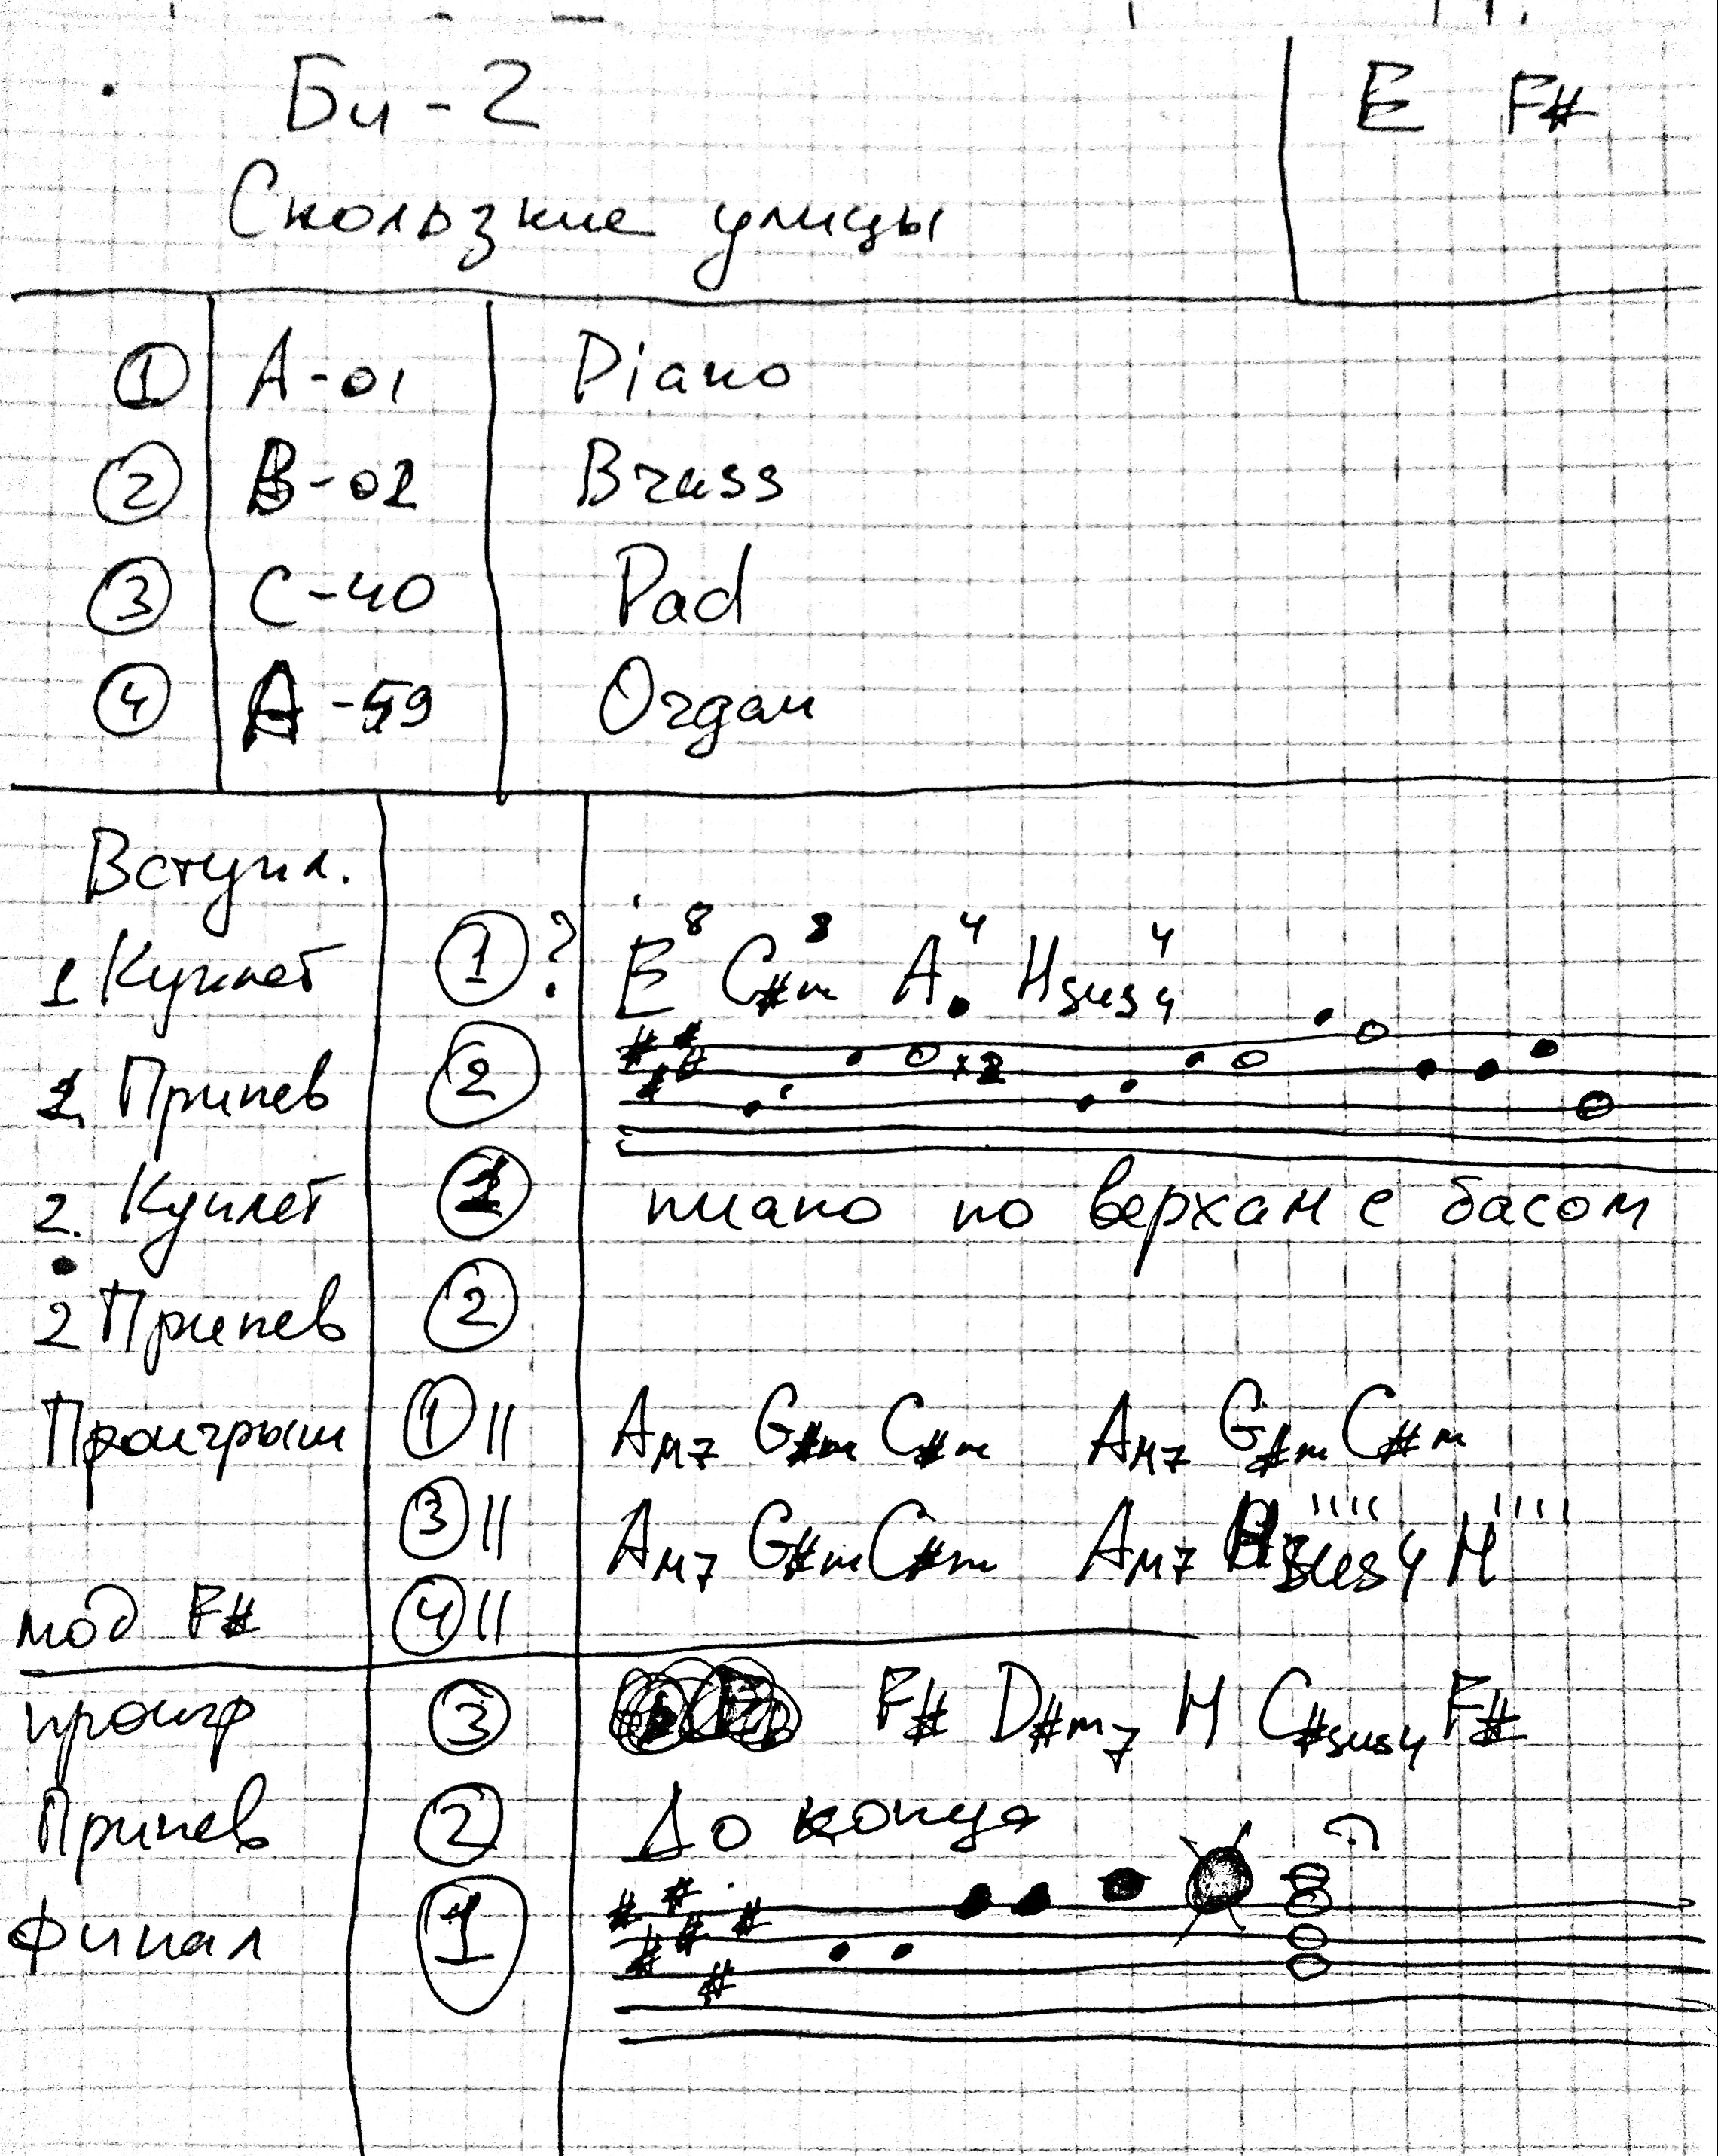 Би-2
E F#
Скользкие улицы
1 A-01 Piano
2 B-02 Brass
3 C-40 Pad
4 A-59 Organ
Вступл.
1 Куплет 1 ? E8 C#m8 A4 Hsus4 4
1 Припев 2 x2
2. Куплет 1 пиано по верхам с басом
2 Припев 2
Проигрыш 1 || AM7 G#m C#m AM7 G#m C#m
3 || AM7 G#m C#m AM7 Hsus4 '''' H ''''
мод F# 4 ||
проигр 3 F# D#m7 H C#sus4 F#
Припев 2 До конца
финал 1